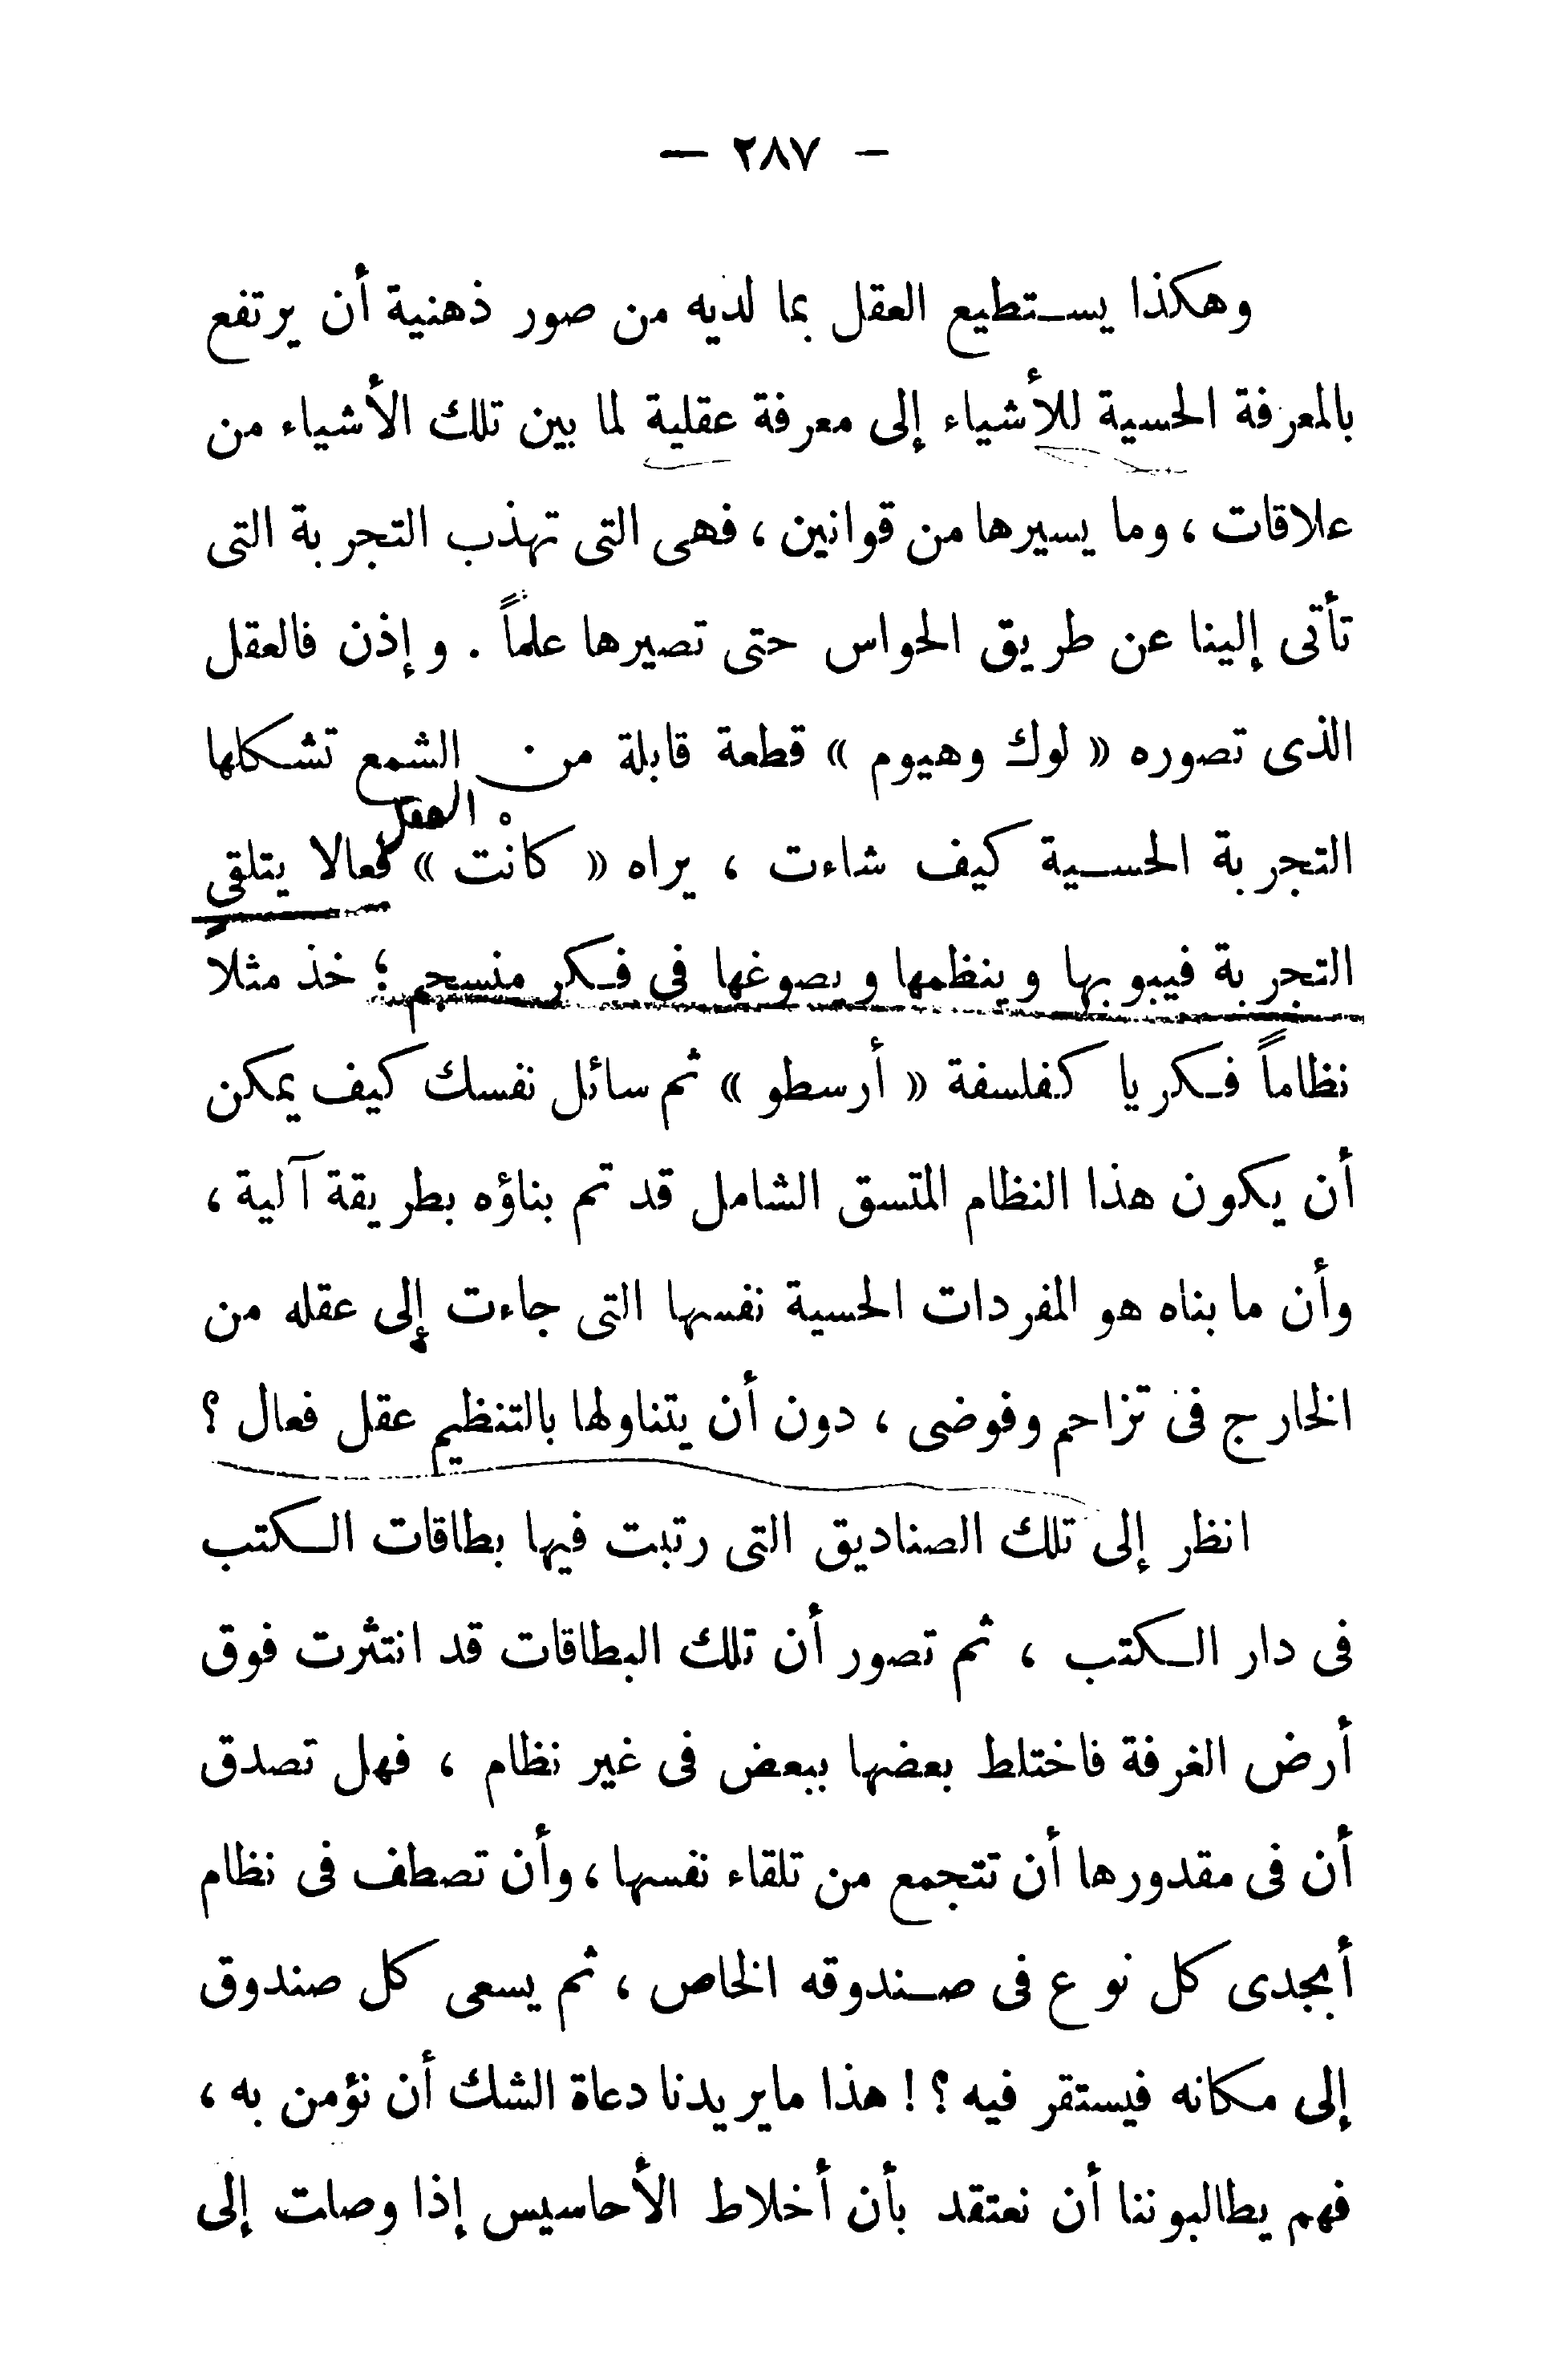 — ٢٨٧ —
وهكذا يستطيع العقل بما لديه من صور ذهنية أن يرتفع
بالمعرفة الحسية للأشياء إلى معرفة عقلية لما بين تلك الأشياء من
علاقات ، وما يسيرها من قوانين ، فهى التى تهذب التجربة التى
تأتى إلينا عن طريق الحواس حتى تصيرها علماً . وإذن فالعقل
الذى تصوره « لوك وهيوم » قطعة قابلة من الشمع تشكلها
العقل
التجربة الحسية كيف شاءت ، يراه « كانْت » فعالا يتلقى
التجربة فيبوبها وينظمها ويصوغها فى فكر منسجم ؛ خذ مثلاً
نظاماً فكريا كفلسفة « أرسطو » ثم سائل نفسك كيف يمكن
أن يكون هذا النظام المتسق الشامل قد تم بناؤه بطريقة آلية ،
وأن ما بناه هو المفردات الحسية نفسها التى جاءت إلى عقله من
الخارج فى تزاحم وفوضى ، دون أن يتناولها بالتنظيم عقل فعال ؟
انظر إلى تلك الصناديق التى رتبت فيها بطاقات الكتب
فى دار الكتب ، ثم تصور أن تلك البطاقات قد انتثرت فوق
أرض الغرفة فاختلط بعضها ببعض فى غير نظام ، فهل تصدق
أن فى مقدورها أن تتجمع من تلقاء نفسها ، وأن تصطف فى نظام
أبجدى كل نوع فى صندوقه الخاص ، ثم يسعى كل صندوق
إلى مكانه فيستقر فيه ؟ ! هذا ما يريدنا دعاة الشك أن نؤمن به ،
فهم يطالبوننا أن نعتقد بأن أخلاط الأحاسيس إذا وصلت إلى